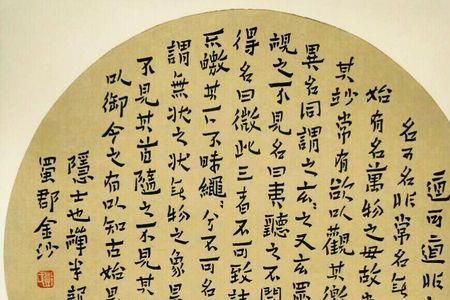 道可道非
名可名非常名無
始有名萬物之母故
其妙常有欲以觀其徼
異名同謂之玄之又玄
視之不見名曰夷聽之不聞
得名曰微此三者不可致詰
不皦其下不昧繩繩兮不可名
謂無狀之狀無物之象是
不見其首隨之不見其
以御今之有以知古始是
隱士也
蜀郡金沙